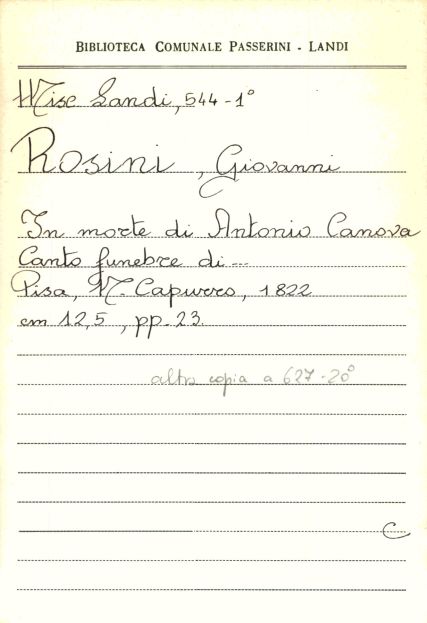 BIBLIOTECA COMUNALE PASSERINI - LANDI
Misc Landi, 544-1°
Rosini, Giovanni
In morte di Antonio Canova
Canto funebre di...
Pisa, N. Capurro, 1822
cm 12,5, pp. 23.
altra copia a 627-20°
C